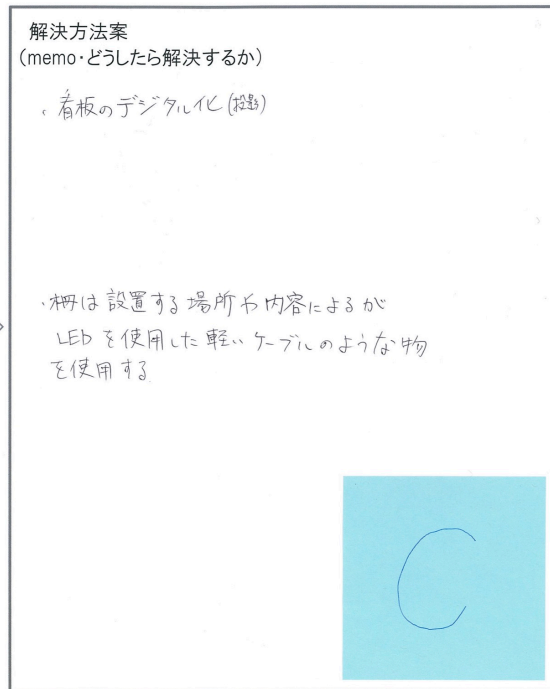 解決方法案
(memo・どうしたら解決するか)
・看板のデジタル化(投影)
・柵は設置する場所や内容によるが
LEDを使用した軽いケーブルのような物
を使用する
C